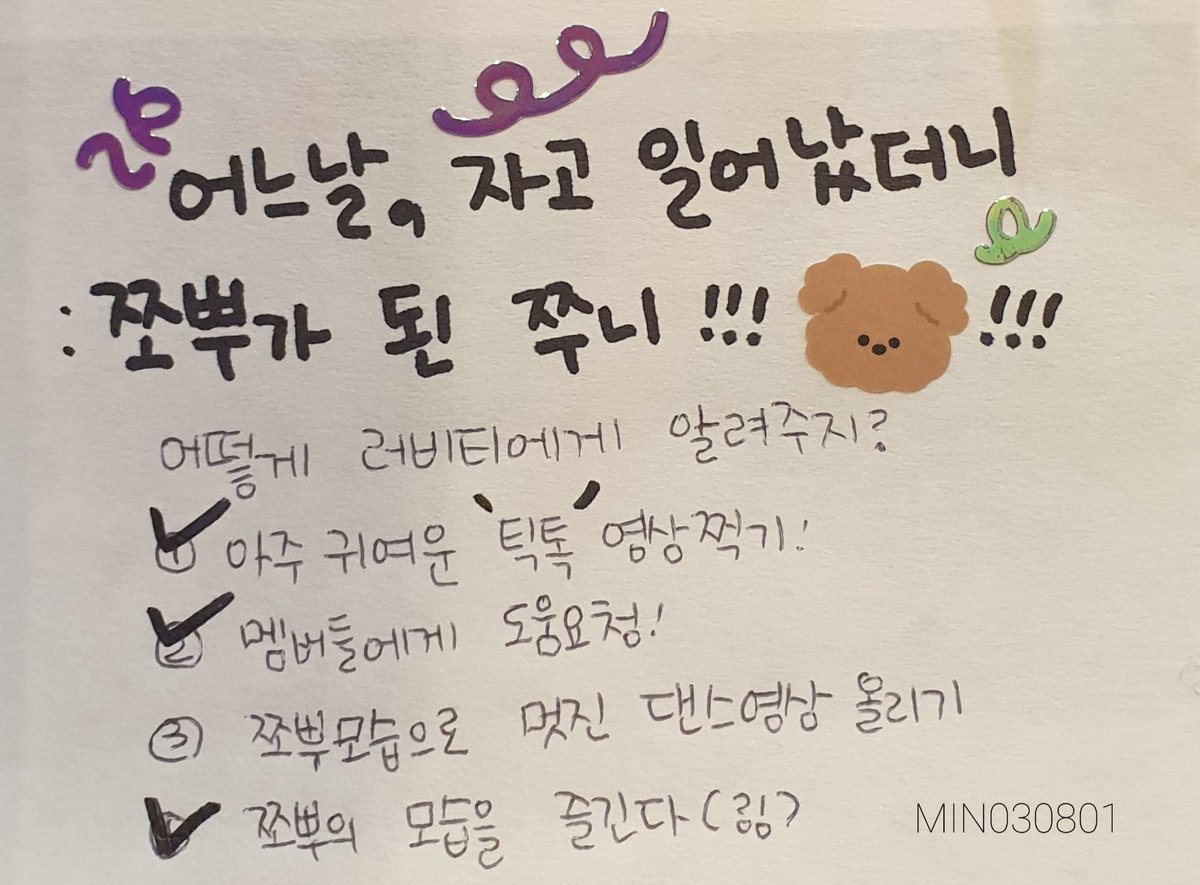 어느날, 자고 일어났더니
: 쪼뿌가 된 쭈니!!! !!!
어떻게 러비티에게 알려주지?
① 아주 귀여운 '틱톡' 영상찍기!
② 멤버들에게 도움요청!
③ 쪼뿌모습으로 멋진 댄스영상 올리기
쪼뿌의 모습을 즐긴다(림?
MIN030801